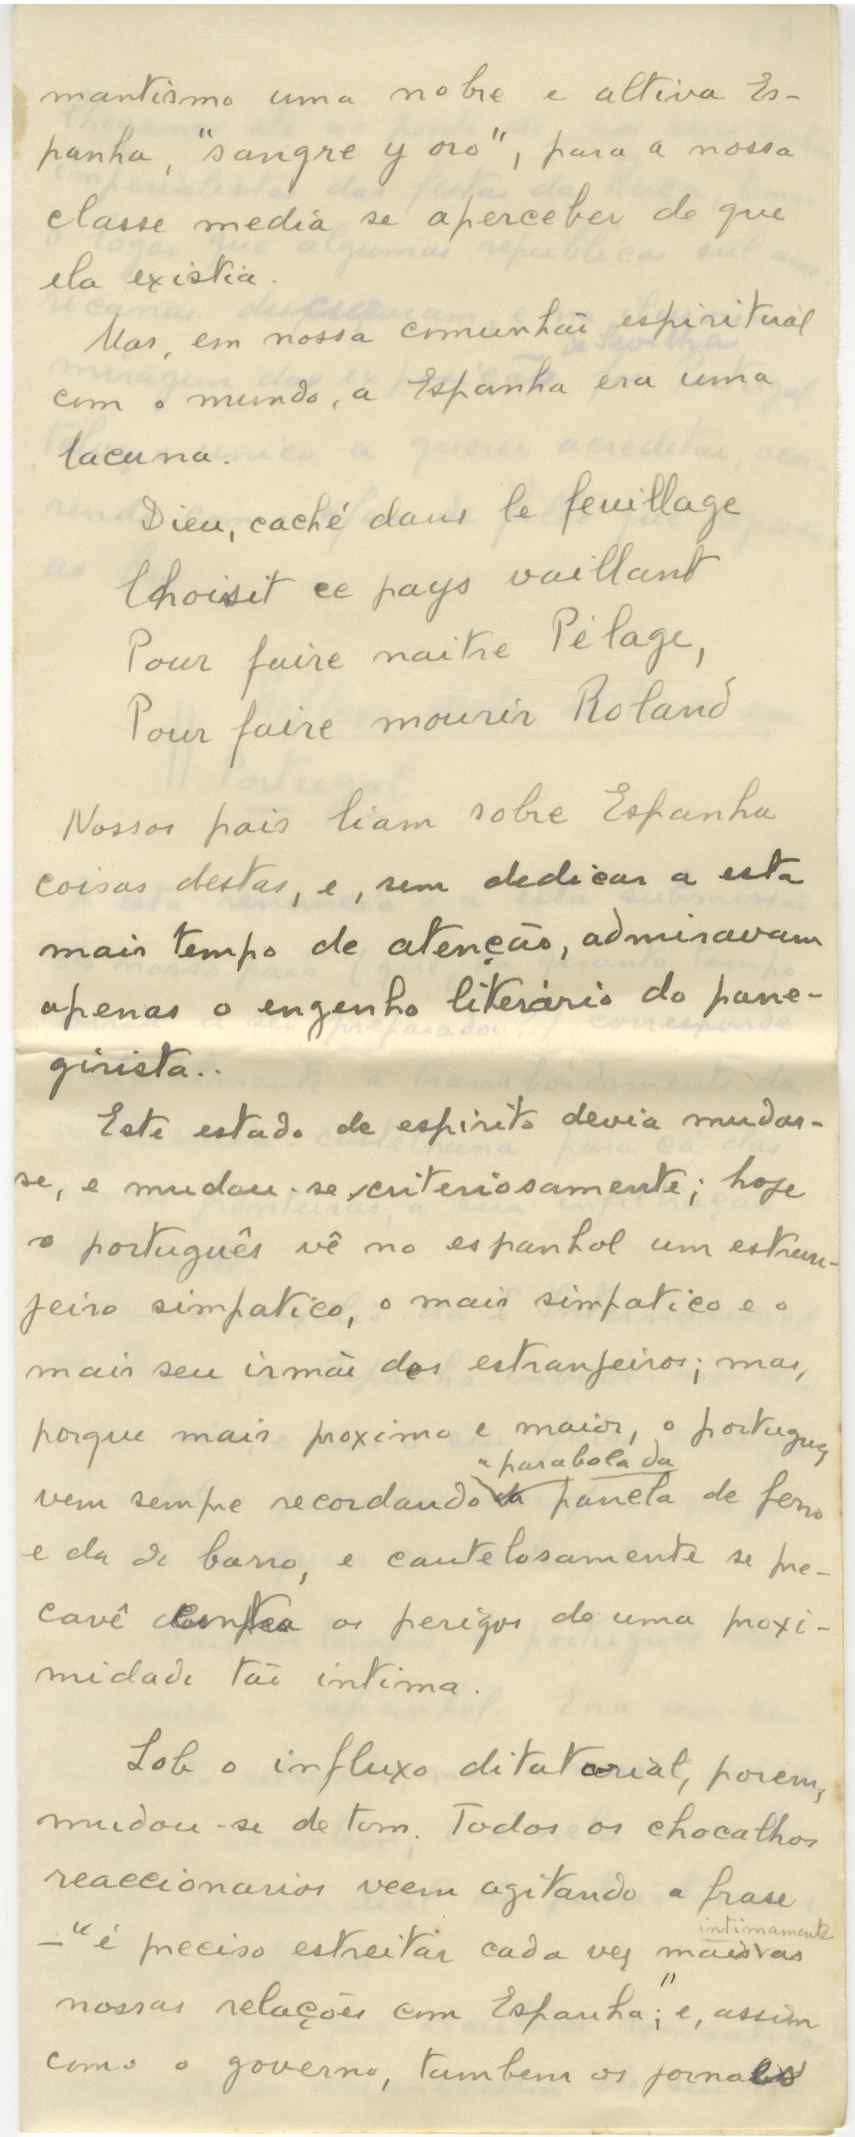 mantismo uma nobre e altiva Es-
panha, "sangre y oro", para a nossa
classe media se aperceber de que
ela existia.
Mas, em nossa comunhão espiritual
com o mundo, a Espanha era uma
lacuna.
Dieu, caché dans le feuillage
Choisit ce pays vaillant
Pour faire naitre Pélage,
Pour faire mourir Roland
Nossos pais liam sobre Espanha
coisas destas, e, sem dedicar a esta
mais tempo de atenção, admiravam
apenas o engenho literário do pane-
girista..
Este estado de espirito devia mudar-
se, e mudou-se criteriosamente; hoje
o português vê no espanhol um estran-
jeiro simpatico, o mais simpatico e o
mais seu irmão dos estranjeiros; mas,
porque mais proximo e maior, o portuguez
a parabola da
vem sempre recordando panela de ferro
e da de barro, e cautelosamente se pre-
cavê contra os perigos de uma proxi-
midade tão intima.
Sob o influxo ditatorial, porem,
mudou-se de tom. Todos os chocalhos
reaccionarios veem agitando a frase
intimamente
—"é preciso estreitar cada vez mais as
nossas relações com Espanha;" e, assim
como o governo, tambem os jornaes